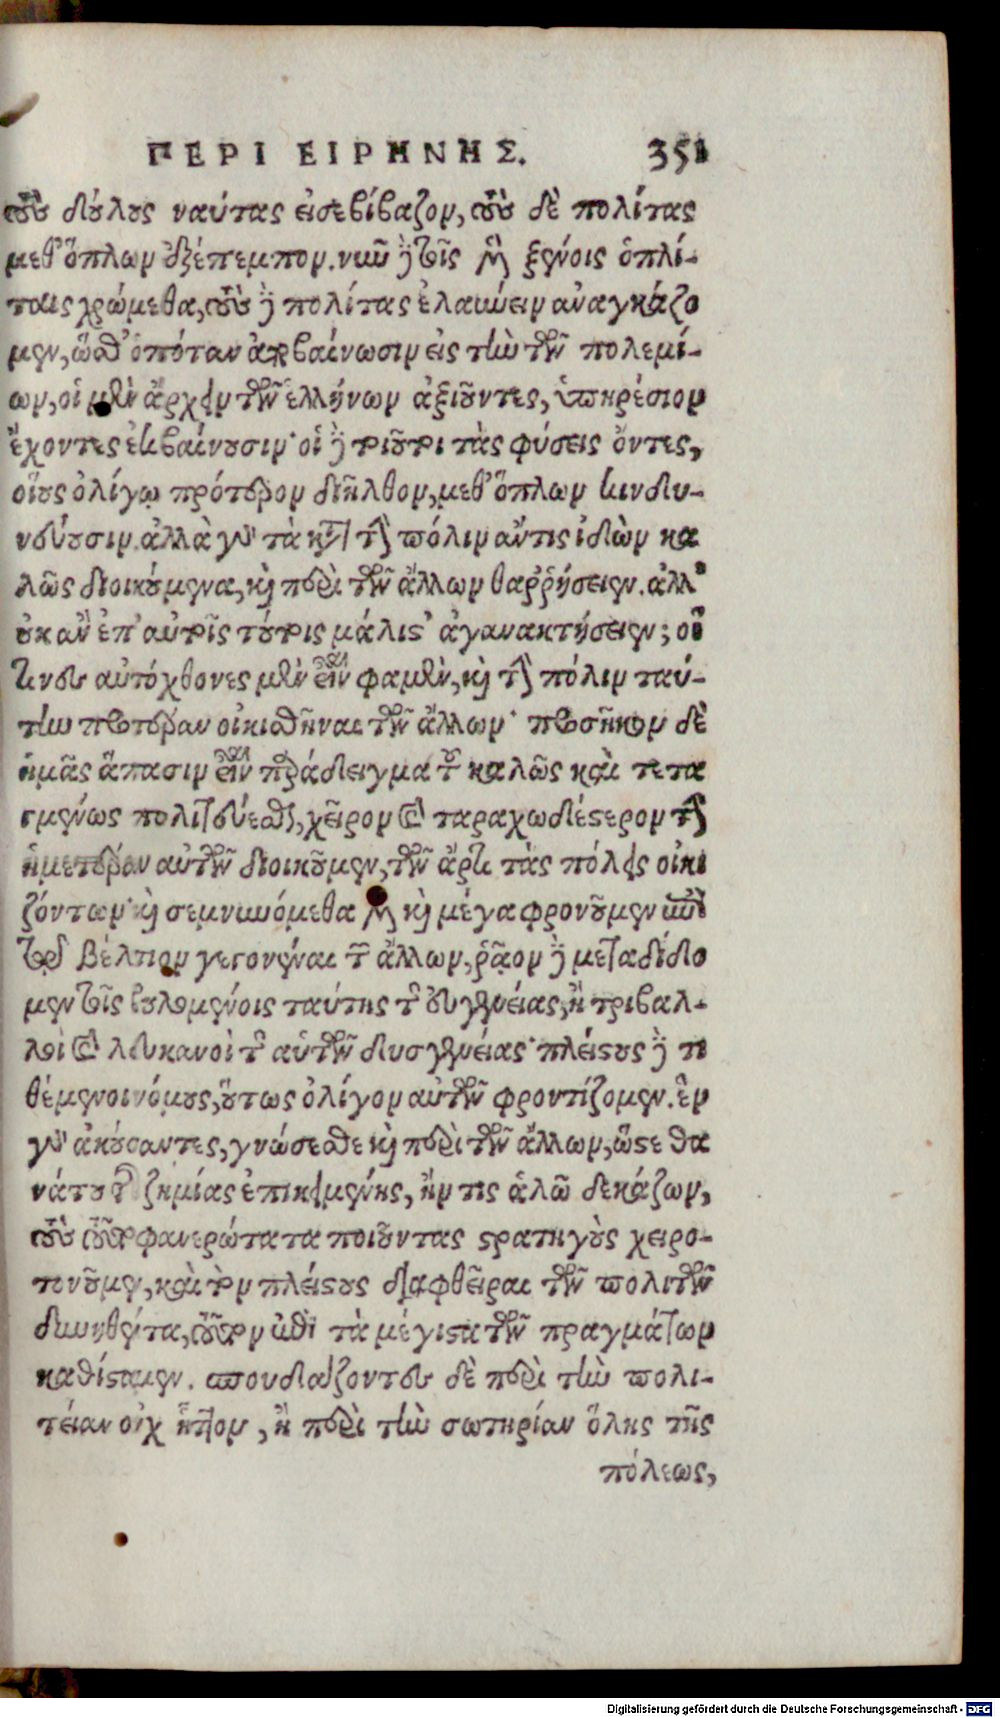 ΠΕΡΙ ΕΙΡΗΝΗΣ. 351
τοὺς δούλους ναύτας εἰσεβίβαζον, τοὺς δὲ πολίτας
μεθ' ὅπλων ἐξέπεμπον. νῦν δὲ τοῖς μὲν ξένοις ὁπλί-
ταις χρώμεθα, τοὺς δὲ πολίτας ἐλαύνειν ἀναγκάζο
μεν, ὥσθ' ὁπόταν ἀποβαίνωσιν εἰς τὴν τῶν πολεμί-
ων, οἱ μὲν ἄρχειν τῶν ἑλλήνων ἀξιοῦντες, ὑπηρέσιον
ἔχοντες ἐκβαίνουσιν· οἱ δὲ τοιοῦτοι τὰς φύσεις ὄντες,
οἵους ὀλίγῳ πρότερον διῆλθον, μεθ' ὅπλων κινδυ-
νεύουσιν. ἀλλὰ γὰρ τὰ κατὰ τὴν πόλιν ἄν τις ἰδὼν κα
λῶς διοικούμενα, καὶ περὶ τῶν ἄλλων θαῤῥήσειεν. ἀλλ'
οὐκ ἂν ἐπ' αὐτοῖς τούτοις μάλιστ' ἀγανακτήσειεν; οἵ
τινες αὐτόχθονες μὲν εἶναι φαμὲν, καὶ τὴν πόλιν ταύ-
την προτέραν οἰκισθῆναι τῶν ἄλλων· προσῆκον δὲ
ἡμᾶς ἅπασιν εἶναι παράδειγμα τοῦ καλῶς καὶ τετα
γμένως πολιτεύεσθαι, χεῖρον καὶ ταραχωδέστερον τὴν
ἡμετέραν αὐτῶν διοικοῦμεν, τῶν ἄρτι τὰς πόλεις οἰκι
ζόντων· καὶ σεμνυνόμεθα μὲν καὶ μέγα φρονοῦμεν ἐπὶ
τῷ βέλτιον γεγονέναι τῶν ἄλλων, ῥᾷον δὲ μεταδίδο
μεν τοῖς βουλομένοις ταύτης τῆς εὐγενείας, ἢ τριβαλ-
λοὶ καὶ λευκανοὶ τῆς αὑτῶν δυσγενείας· πλείστους δὲ τι
θέμενοι νόμους, οὕτως ὀλίγον αὐτῶν φροντίζομεν. ἓν
γὰρ ἀκούσαντες, γνώσεσθε καὶ περὶ τῶν ἄλλων, ὥστε θα
νάτου τῆς ζημίας ἐπικειμένης, ἤν τις ἁλῷ δεκάζων,
τοὺς τοῦτο φανερώτατα ποιοῦντας στρατηγοὺς χειρο-
τονοῦμεν, καὶ τὸν πλείστους διαφθεῖραι τῶν πολιτῶν
δυνηθέντα, τοῦτον ἐπὶ τὰ μέγιστα τῶν πραγμάτων
καθίσταμεν. σπουδάζοντες δὲ περὶ τὴν πολι-
τείαν οὐχ ἧττον, ἢ περὶ τὴν σωτηρίαν ὅλης τῆς
πόλεως,
Digitalisierung gefördert durch die Deutsche Forschungsgemeinschaft - DFG